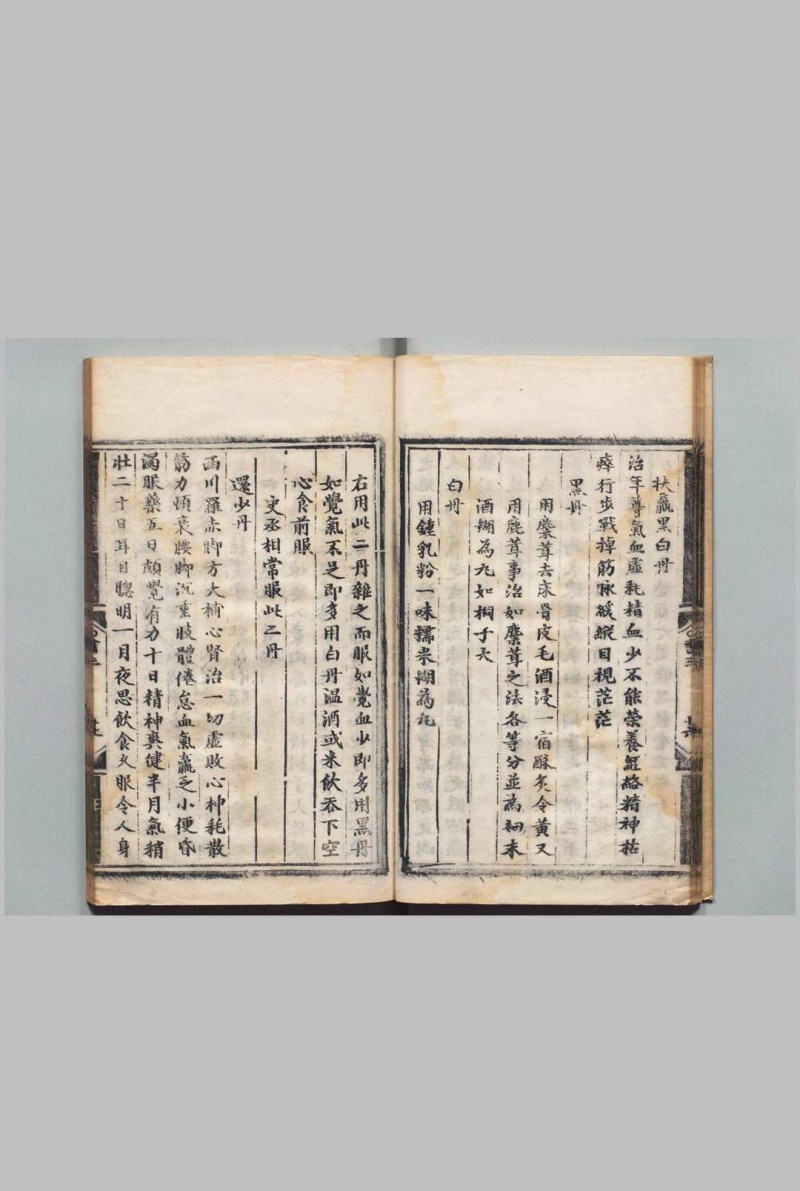 扶羸黑白丹
治年尊氣血虛耗精血少不能榮養經絡精神枯
瘁行步戰掉筋脉緩縱目視茫茫
黑丹
用麋茸去床骨皮毛酒浸一宿酥炙令黄又
用鹿茸事治如麋茸之法各等分並爲細末
酒糊為丸如桐子大
白丹
用鍾乳粉一味糯米糊為丸
右用此二丹雜之而服如覺血少即多用黑丹
如覺氣不足即多用白丹温酒或米飲吞下空
心食前服
史丞相常服此二丹
還少丹
西川羅赤脚方大補心腎治一切虛敗心神耗散
筋力頓衰腰脚沉重肢體倦怠血氣羸乏小便昏
濁服藥五日頗覺有力十日精神爽健半月氣稍
壯二十日耳目聰明一月夜思飲食久服令人身